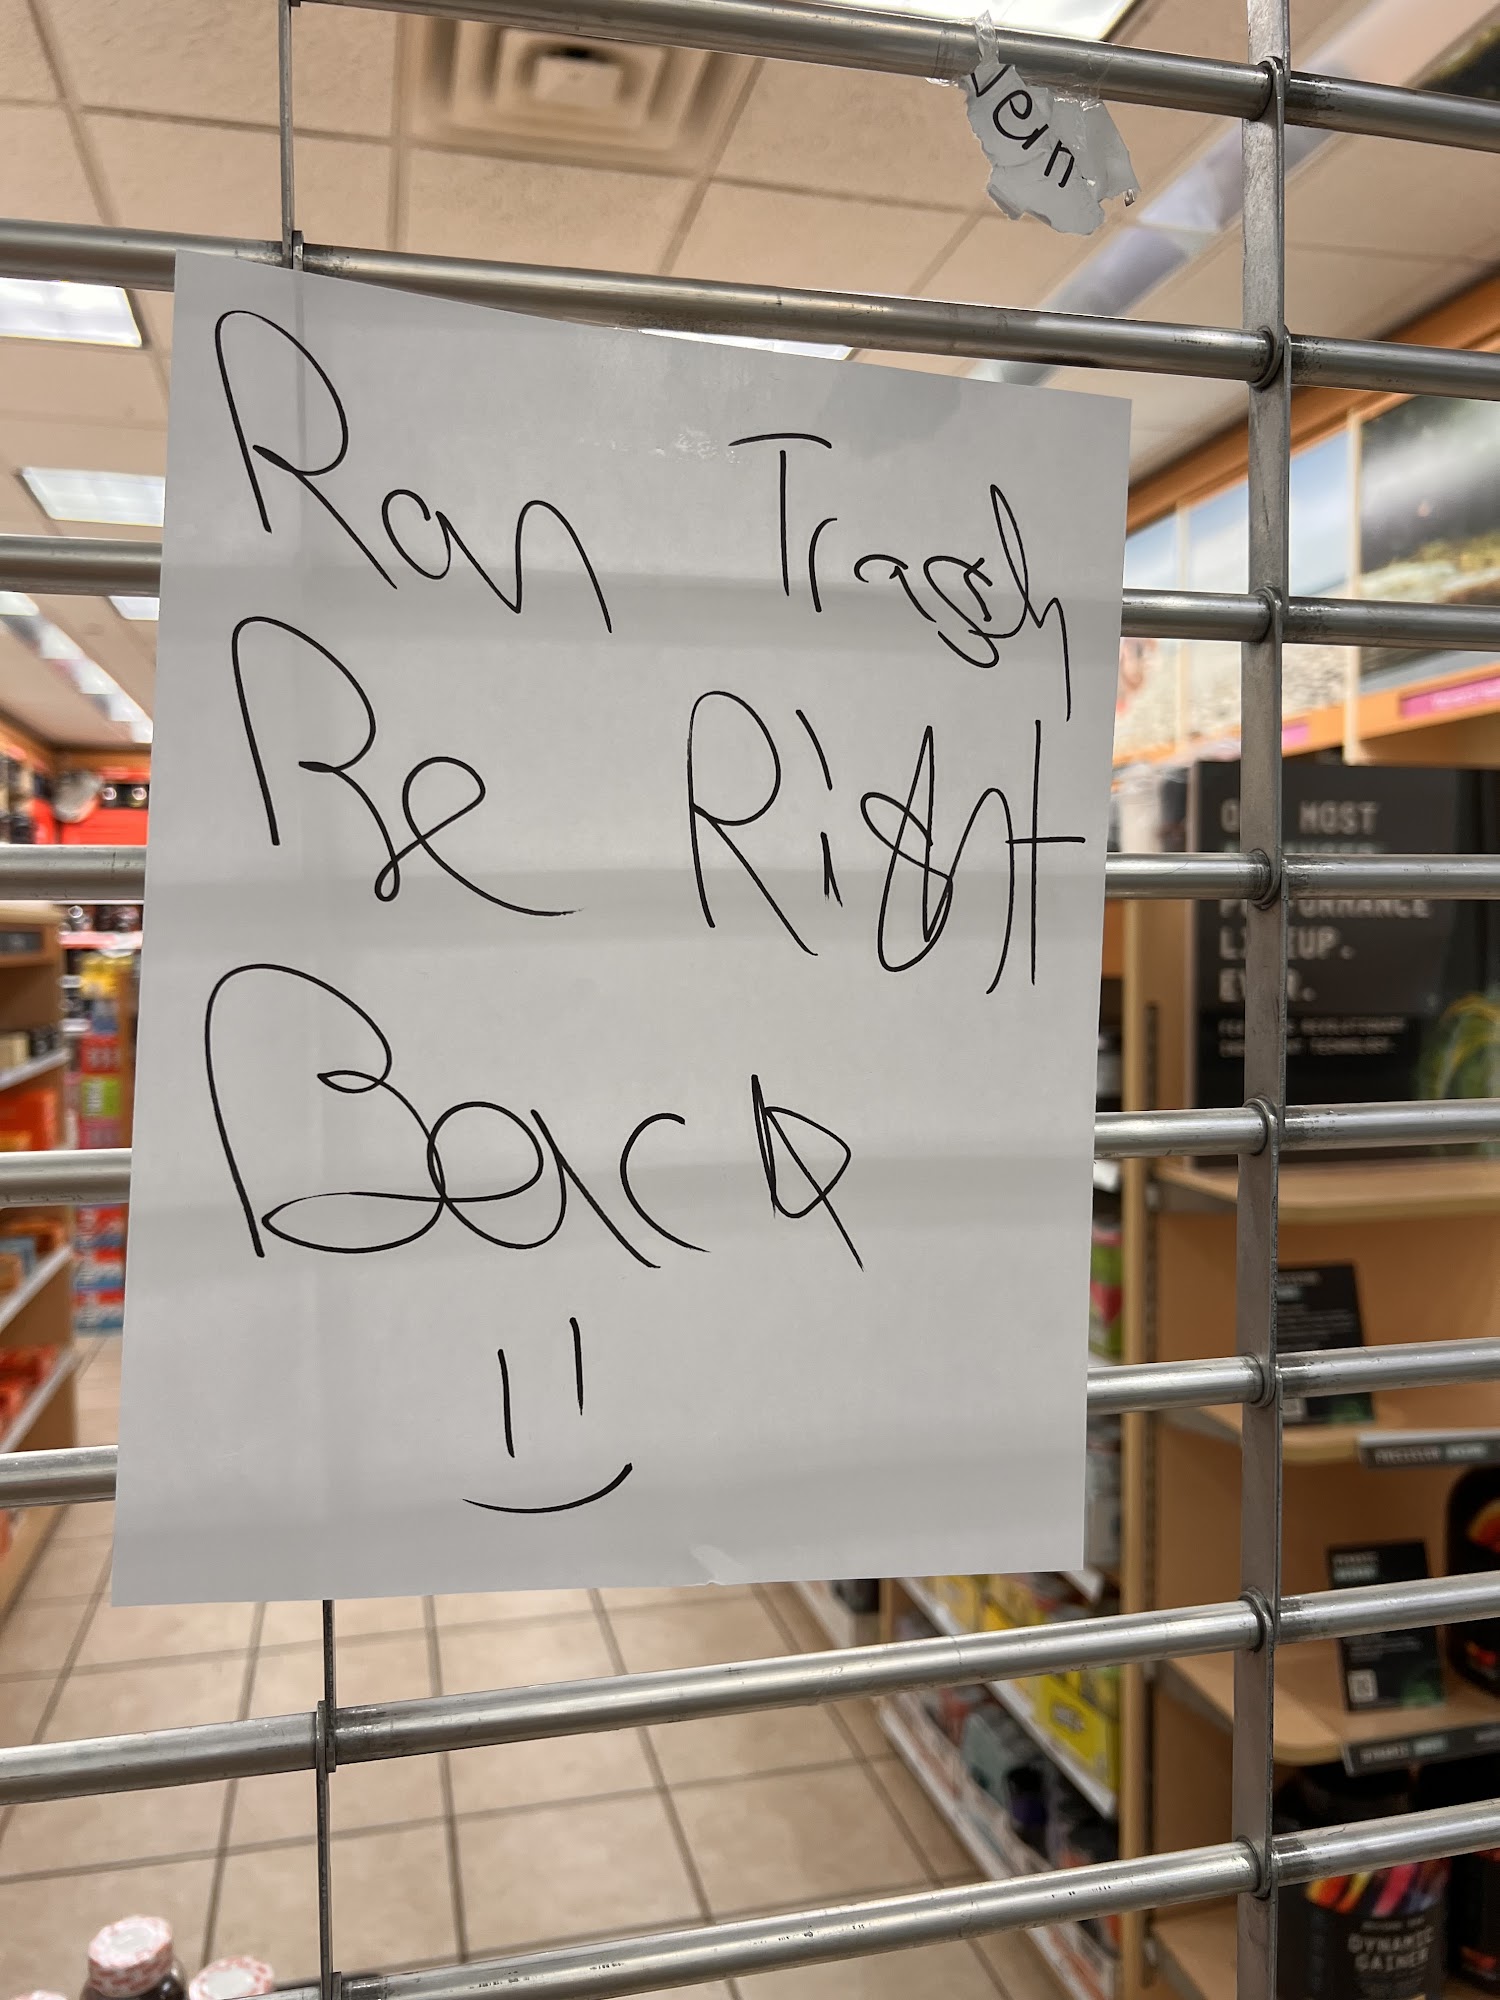 Ran Trash
Be Right
Back
OUR MOST
PERFORMANCE
LINEUP.
EVER.
DYNAMIC
GAINER